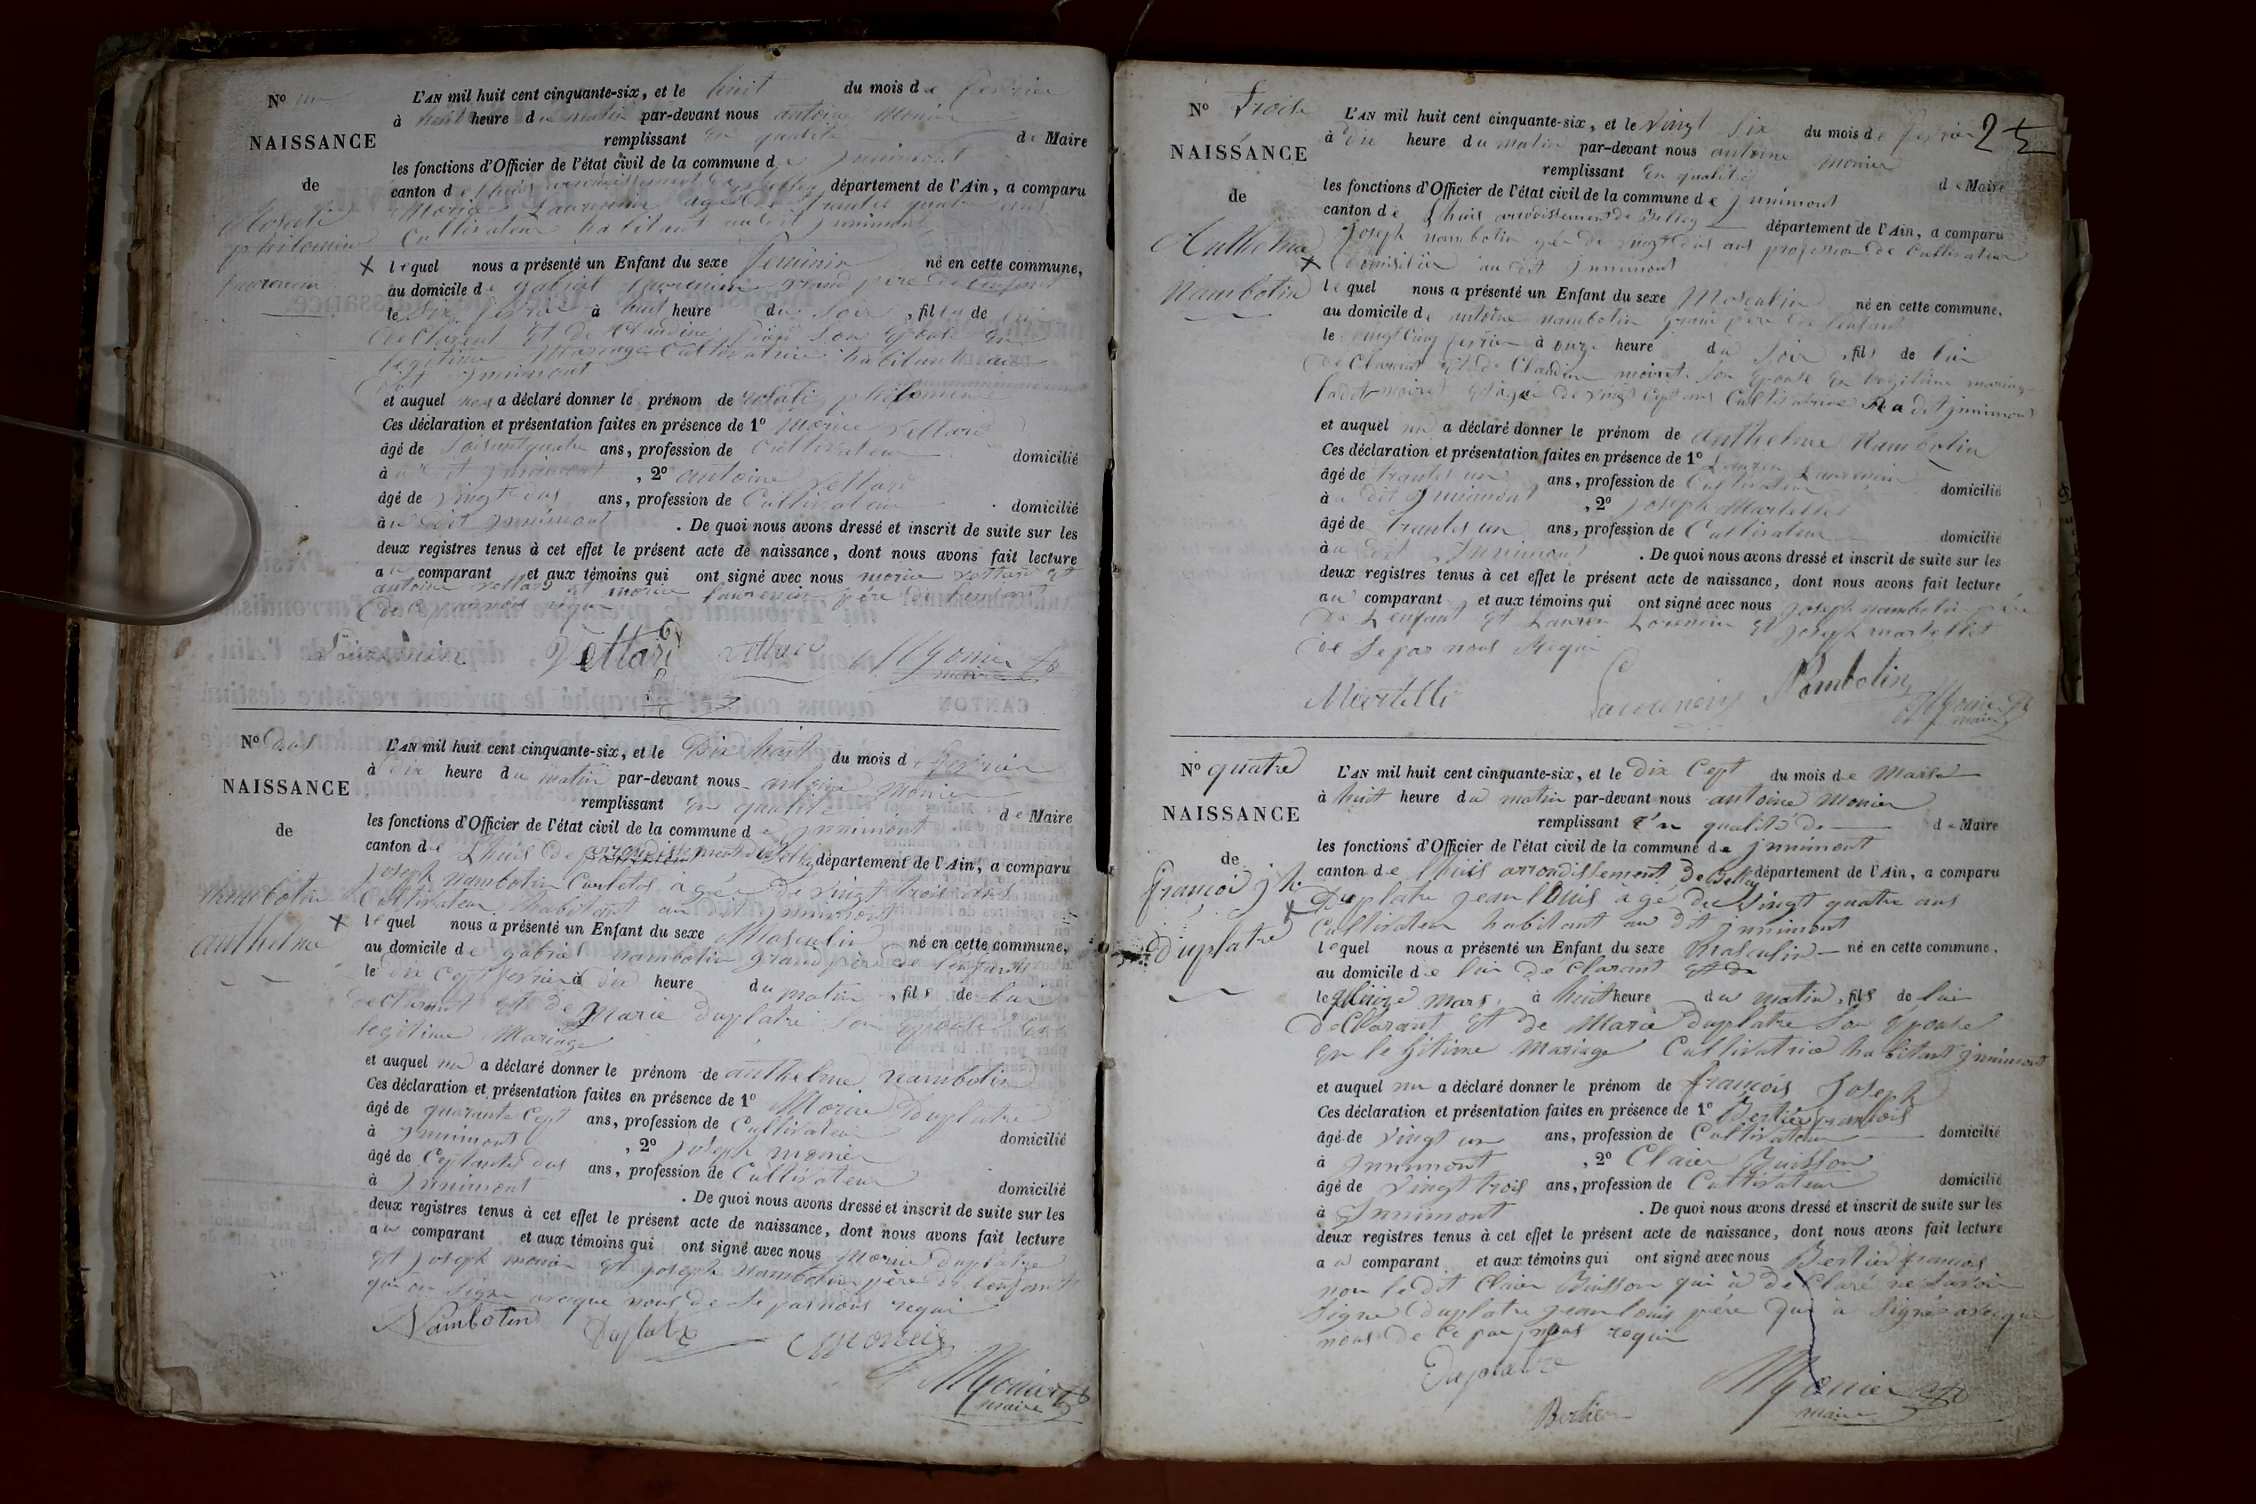 N° un
NAISSANCE
de
Rosalie
philomine
Laurencin
L'AN mil huit cent cinquante-six, et le huit du mois de fevrier
à huit heure du matin par-devant nous antoine Monier
remplissant en qualité de Maire
les fonctions d'Officier de l'état civil de la commune de jnnimont
canton de Lhuis arrondissement de Belley département de l'Ain, a comparu
Morice Laurencin agé de trantes quatre ans
Cultivateur habitant au dit jnnimont
lequel nous a présenté un Enfant du sexe feminin né en cette commune,
au domicile de gabriel Laurencin grand père de l'enfant
le Six fevrier à huit heure du Soir, fille de lui
declarant et de Claudine son épouse en
legitime Mariage Cultivatrice habitante au
dit jnnimont
et auquel nous a déclaré donner le prénom de rosalie philomine
Ces déclaration et présentation faites en présence de 1° Morice Vettard
âgé de Soisantquatre ans, profession de Cultivateur domicilié
à au dit jnnimont, 2° antoine Vettard
âgé de vingt dus ans, profession de Cultivateur domicilié
à u dit jnnimont. De quoi nous avons dressé et inscrit de suite sur les
deux registres tenus à cet effet le présent acte de naissance, dont nous avons fait lecture
au comparant et aux témoins qui ont signé avec nous morice vettard et
antoine vettard et morice Laurencin père de l'enfant
de ce par nous requi
Laurencin Vettard vettard Monier
maire
N° dus
NAISSANCE
de
nambotin
anthelme
L'AN mil huit cent cinquante-six, et le Dix huit du mois de fevrier
à dix heure du matin par-devant nous antoine Monier
remplissant en qualité de Maire
les fonctions d'Officier de l'état civil de la commune de jnnimont
canton de Lhuis de arrondissement de Belley département de l'Ain, a comparu
Joseph nambotin âgée de vingt trois ans
Cultivateur habitant au dit jnnimont
lequel nous a présenté un Enfant du sexe Masculin né en cette commune,
au domicile de gabriel nambotin grand père de l'enfant
le dix Cept fevrier à dix heure du matin, fils de lui
declarant et de Marie duplatre son épouse en
legitime Mariage
et auquel nu a déclaré donner le prénom de anthelme nambotin
Ces déclaration et présentation faites en présence de 1° Morice Duplatre
âgé de quarante Cept ans, profession de Cultivateur domicilié
à jnnimont, 2° joseph monier
âgé de Ceptantes dus ans, profession de Cultivateur domicilié
à jnnimont. De quoi nous avons dressé et inscrit de suite sur les
deux registres tenus à cet effet le présent acte de naissance, dont nous avons fait lecture
au comparant et aux témoins qui ont signé avec nous Morice duplatre
et joseph monier et joseph Nambotin père de l'enfant
qui on Signe avecque nous de Se par nous requi
Nambotin Duplatre Monier
Monier
maire
2
N° Troise
NAISSANCE
de
Anthelme
Nambotin
L'AN mil huit cent cinquante-six, et le Vingt Six du mois de fevrier
à dix heure du matin par-devant nous antoine monier
remplissant en qualité de Maire
les fonctions d'Officier de l'état civil de la commune de jnnimont
canton de Lhuis arrondissement de Belley département de l'Ain, a comparu
joseph nambotin agée de vingt dus ans profession de Cultivateur
domisilier au dit jnnimont
lequel nous a présenté un Enfant du sexe Masculin né en cette commune,
au domicile de antoine nambotin grand père de l'enfant
le vingt Cinq fevrier à onze heure du Soir, fils de lui
de Clarant et de Claudine moiret Son épouse en legitime mariage
ladit moiret et agée de vingt Cept ans Cultivatrice a dit jnnimont
et auquel nu a déclaré donner le prénom de anthelme Nambotin
Ces déclaration et présentation faites en présence de 1° Laurencin
âgé de trantes un ans, profession de Cultivateur domicilié
à u dit jnnimont, 2° joseph Martellet
âgé de trantes un ans, profession de Cultivateur domicilié
à u dit jnnimont. De quoi nous avons dressé et inscrit de suite sur les
deux registres tenus à cet effet le présent acte de naissance, dont nous avons fait lecture
au comparant et aux témoins qui ont signé avec nous joseph nambotin père
de L'enfant et Lorencin et joseph martellet
de Se par nous Requi
Martellet Laurencin Nambotin Monier
maire
N° quatre
NAISSANCE
de
françoi jh
Duplatre
L'AN mil huit cent cinquante-six, et le dix Cept du mois de Marse
à huit heure du matin par-devant nous antoine Monier
remplissant En qualité de de Maire
les fonctions d'Officier de l'état civil de la commune de jnnimont
canton de Lhuis arrondissement de Belley département de l'Ain, a comparu
Duplatre jean louis agé de Vingt quatre ans
Cultivateur habitant au dit jnnimont
lequel nous a présenté un Enfant du sexe Masculin né en cette commune,
au domicile de lui de Clarant et de
le quinze mars, à huit heure du matin, fils de lui
declarant et de Marie duplatre Son épouse
en le gitime Mariage Cultivatrice habitant jnnimont
et auquel nu a déclaré donner le prénom de françois Joseph
Ces déclaration et présentation faites en présence de 1° Bertier françois
âgé de vingt un ans, profession de Cultivateur domicilié
à jnnimont, 2° Claier Buisson
âgé de vingt trois ans, profession de Cultivateur domicilié
à jnnimont. De quoi nous avons dressé et inscrit de suite sur les
deux registres tenus à cet effet le présent acte de naissance, dont nous avons fait lecture
au comparant et aux témoins qui ont signé avec nous Bertier francois
non le dit Claier Buisson qui à de Claré ne Savoir
Signe Duplatre jean louis père qui à Signé avecque
nous de Ce par nous requi
Duplatre
Bertier
Monier
maire